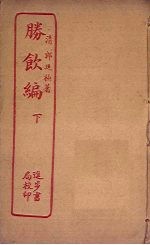 清 郎廷極著
勝飲編
下
進步書
局校印